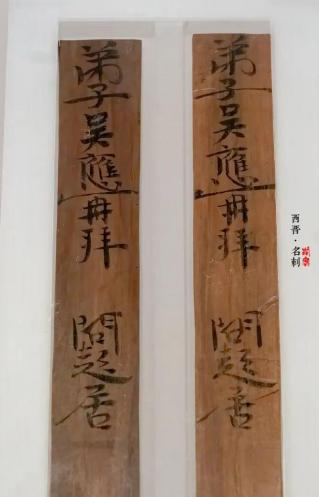 西晋·名刺
弟子吴應再拜 問起居
弟子吴應再拜 問起居